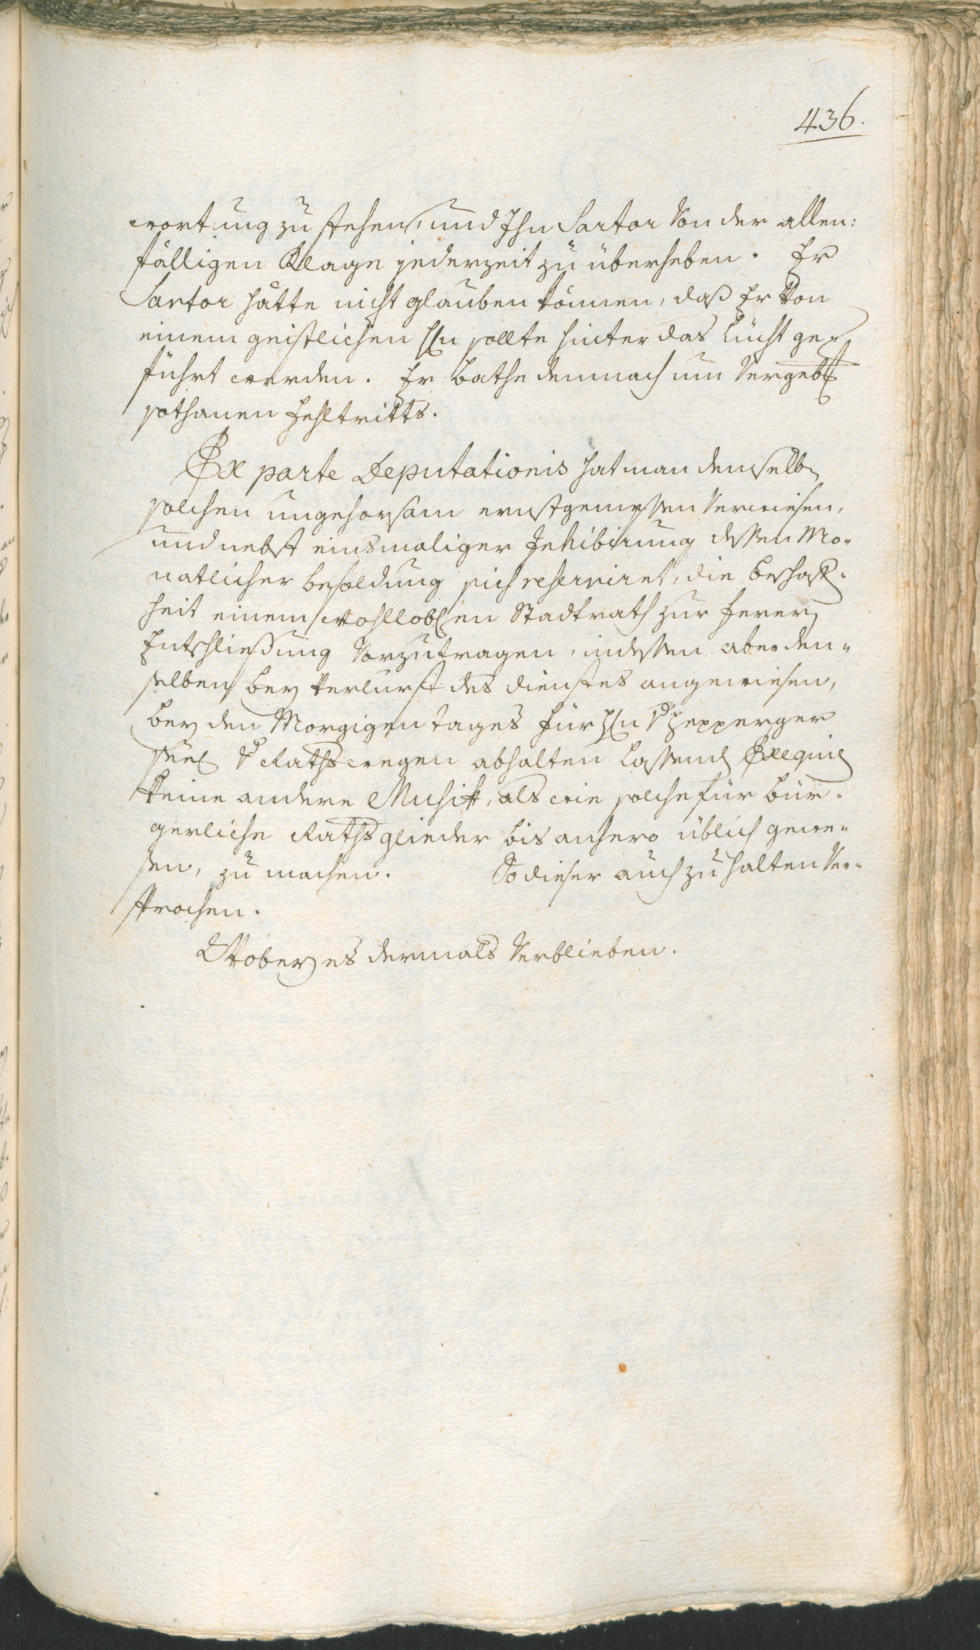 436.
wortung zu stehen, und Ihn Sartor von der allen:
fälligen Klage jederzeit zu überheben. Er
Sartor hätte nicht glauben können, daß Er von
einem geistlichen Hn sollte hinter das Liecht ge-
führt werden. Er bathe demnach um Vergeb
sothanen Fehltritts.
Ex parte Deputationis hat man demselb
solchen ungehorsam ernstgemessen verwiesen,
und nebst einsmaliger Inhibirung dessen Mo-
natlicher besoldung sich reserviret, die beschaff-
heit einem wohllobl en Stadtrath zur ferer
Entschließung vorzutragen, indessen aber den-
selben bey verlurst des dienstes angewiesen,
bey den Morgigen tages für Hn
seel Raths wegen abhalten lassend Exequien
keine andere Musik, als wie solche für bür-
gerliche Rathsglieder bis anhero üblich gewe-
sen, zu machen. So dieser auch zu halten ver-
sprochen.
Wobey es dermals verblieben.